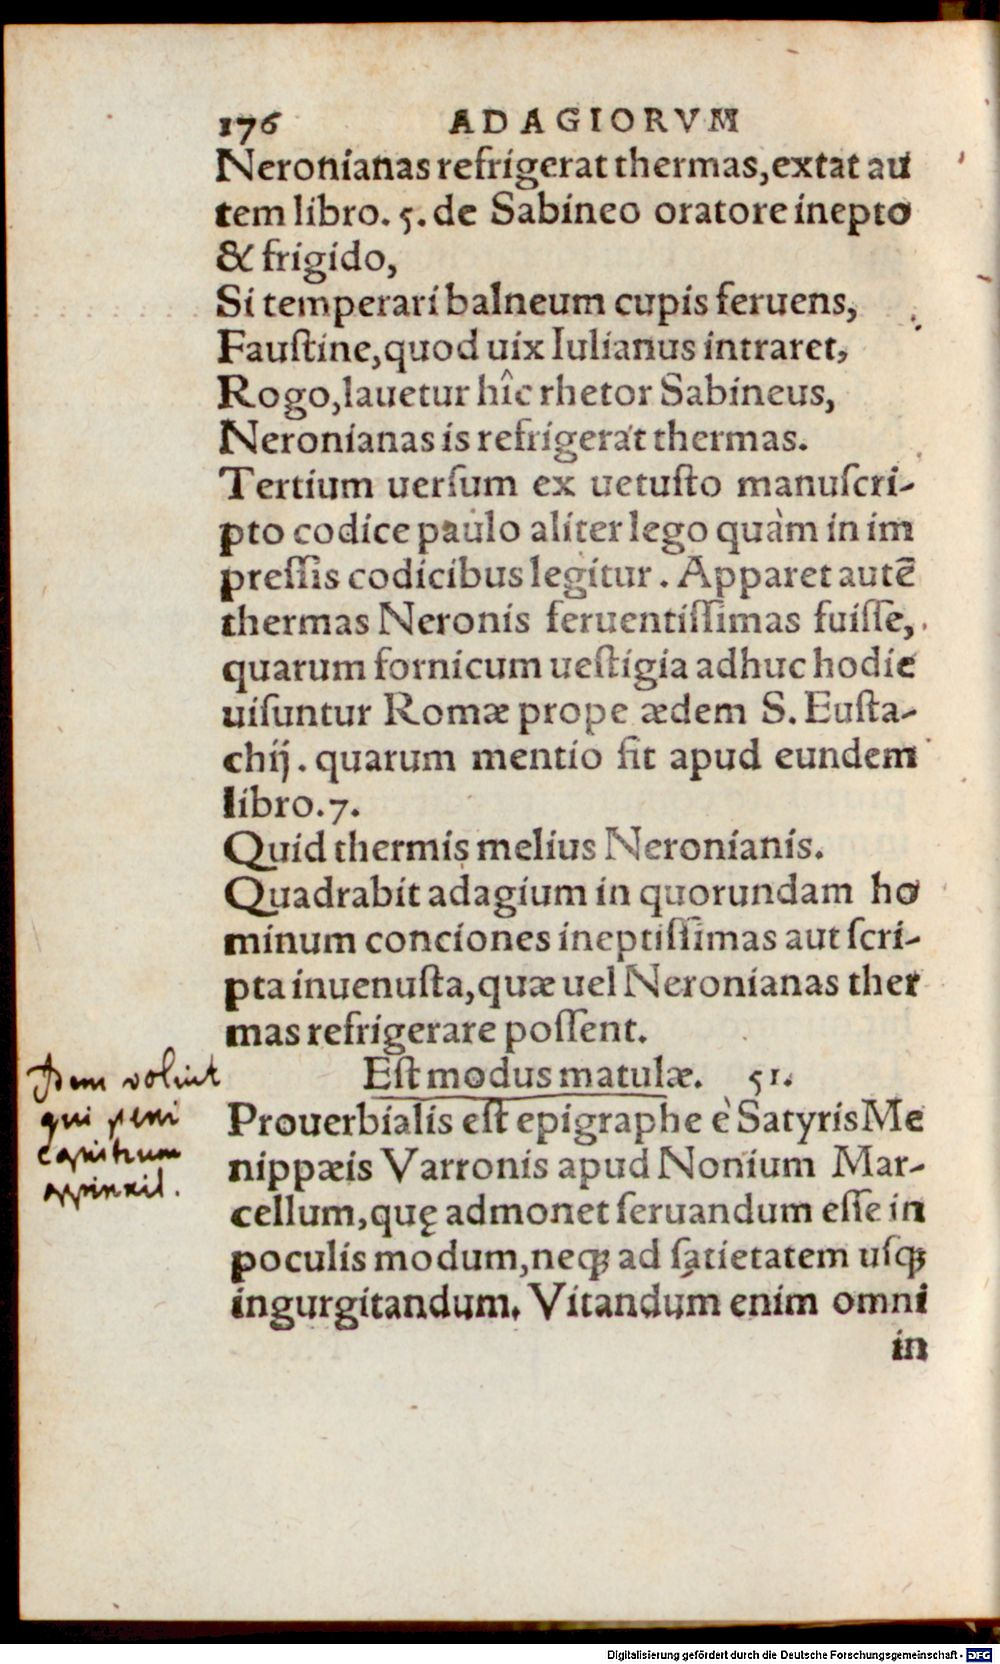 176 ADAGIORVM
Neronianas refrigerat thermas, extat au
tem libro. 5. de Sabineo oratore inepto
& frigido,
Si temperari balneum cupis feruens,
Faustine, quod uix Iulianus intraret,
Rogo, lauetur hîc rhetor Sabineus,
Neronianas is refrigerat thermas.
Tertium uersum ex uetusto manuscri-
pto codice paulo aliter lego quàm in im
pressis codicibus legitur. Apparet autē
thermas Neronis feruentissimas fuisse,
quarum fornicum uestigia adhuc hodie
uisuntur Romæ prope ædem S. Eusta-
chij. quarum mentio fit apud eundem
libro. 7.
Quid thermis melius Neronianis.
Quadrabit adagium in quorundam ho
minum conciones ineptissimas aut scri-
pta inuenusta, quæ uel Neronianas ther
mas refrigerare possent.
Est modus matulæ. 51.
Prouerbialis est epigraphe è Satyris Me
nippæis Varronis apud Nonium Mar-
cellum, quę admonet seruandum esse in
poculis modum, neq; ad satietatem usq;
ingurgitandum. Vitandum enim omni
in
Idem voluit
qui peni
capistrum
appinxit.
Digitalisierung gefördert durch die Deutsche Forschungsgemeinschaft - DFG